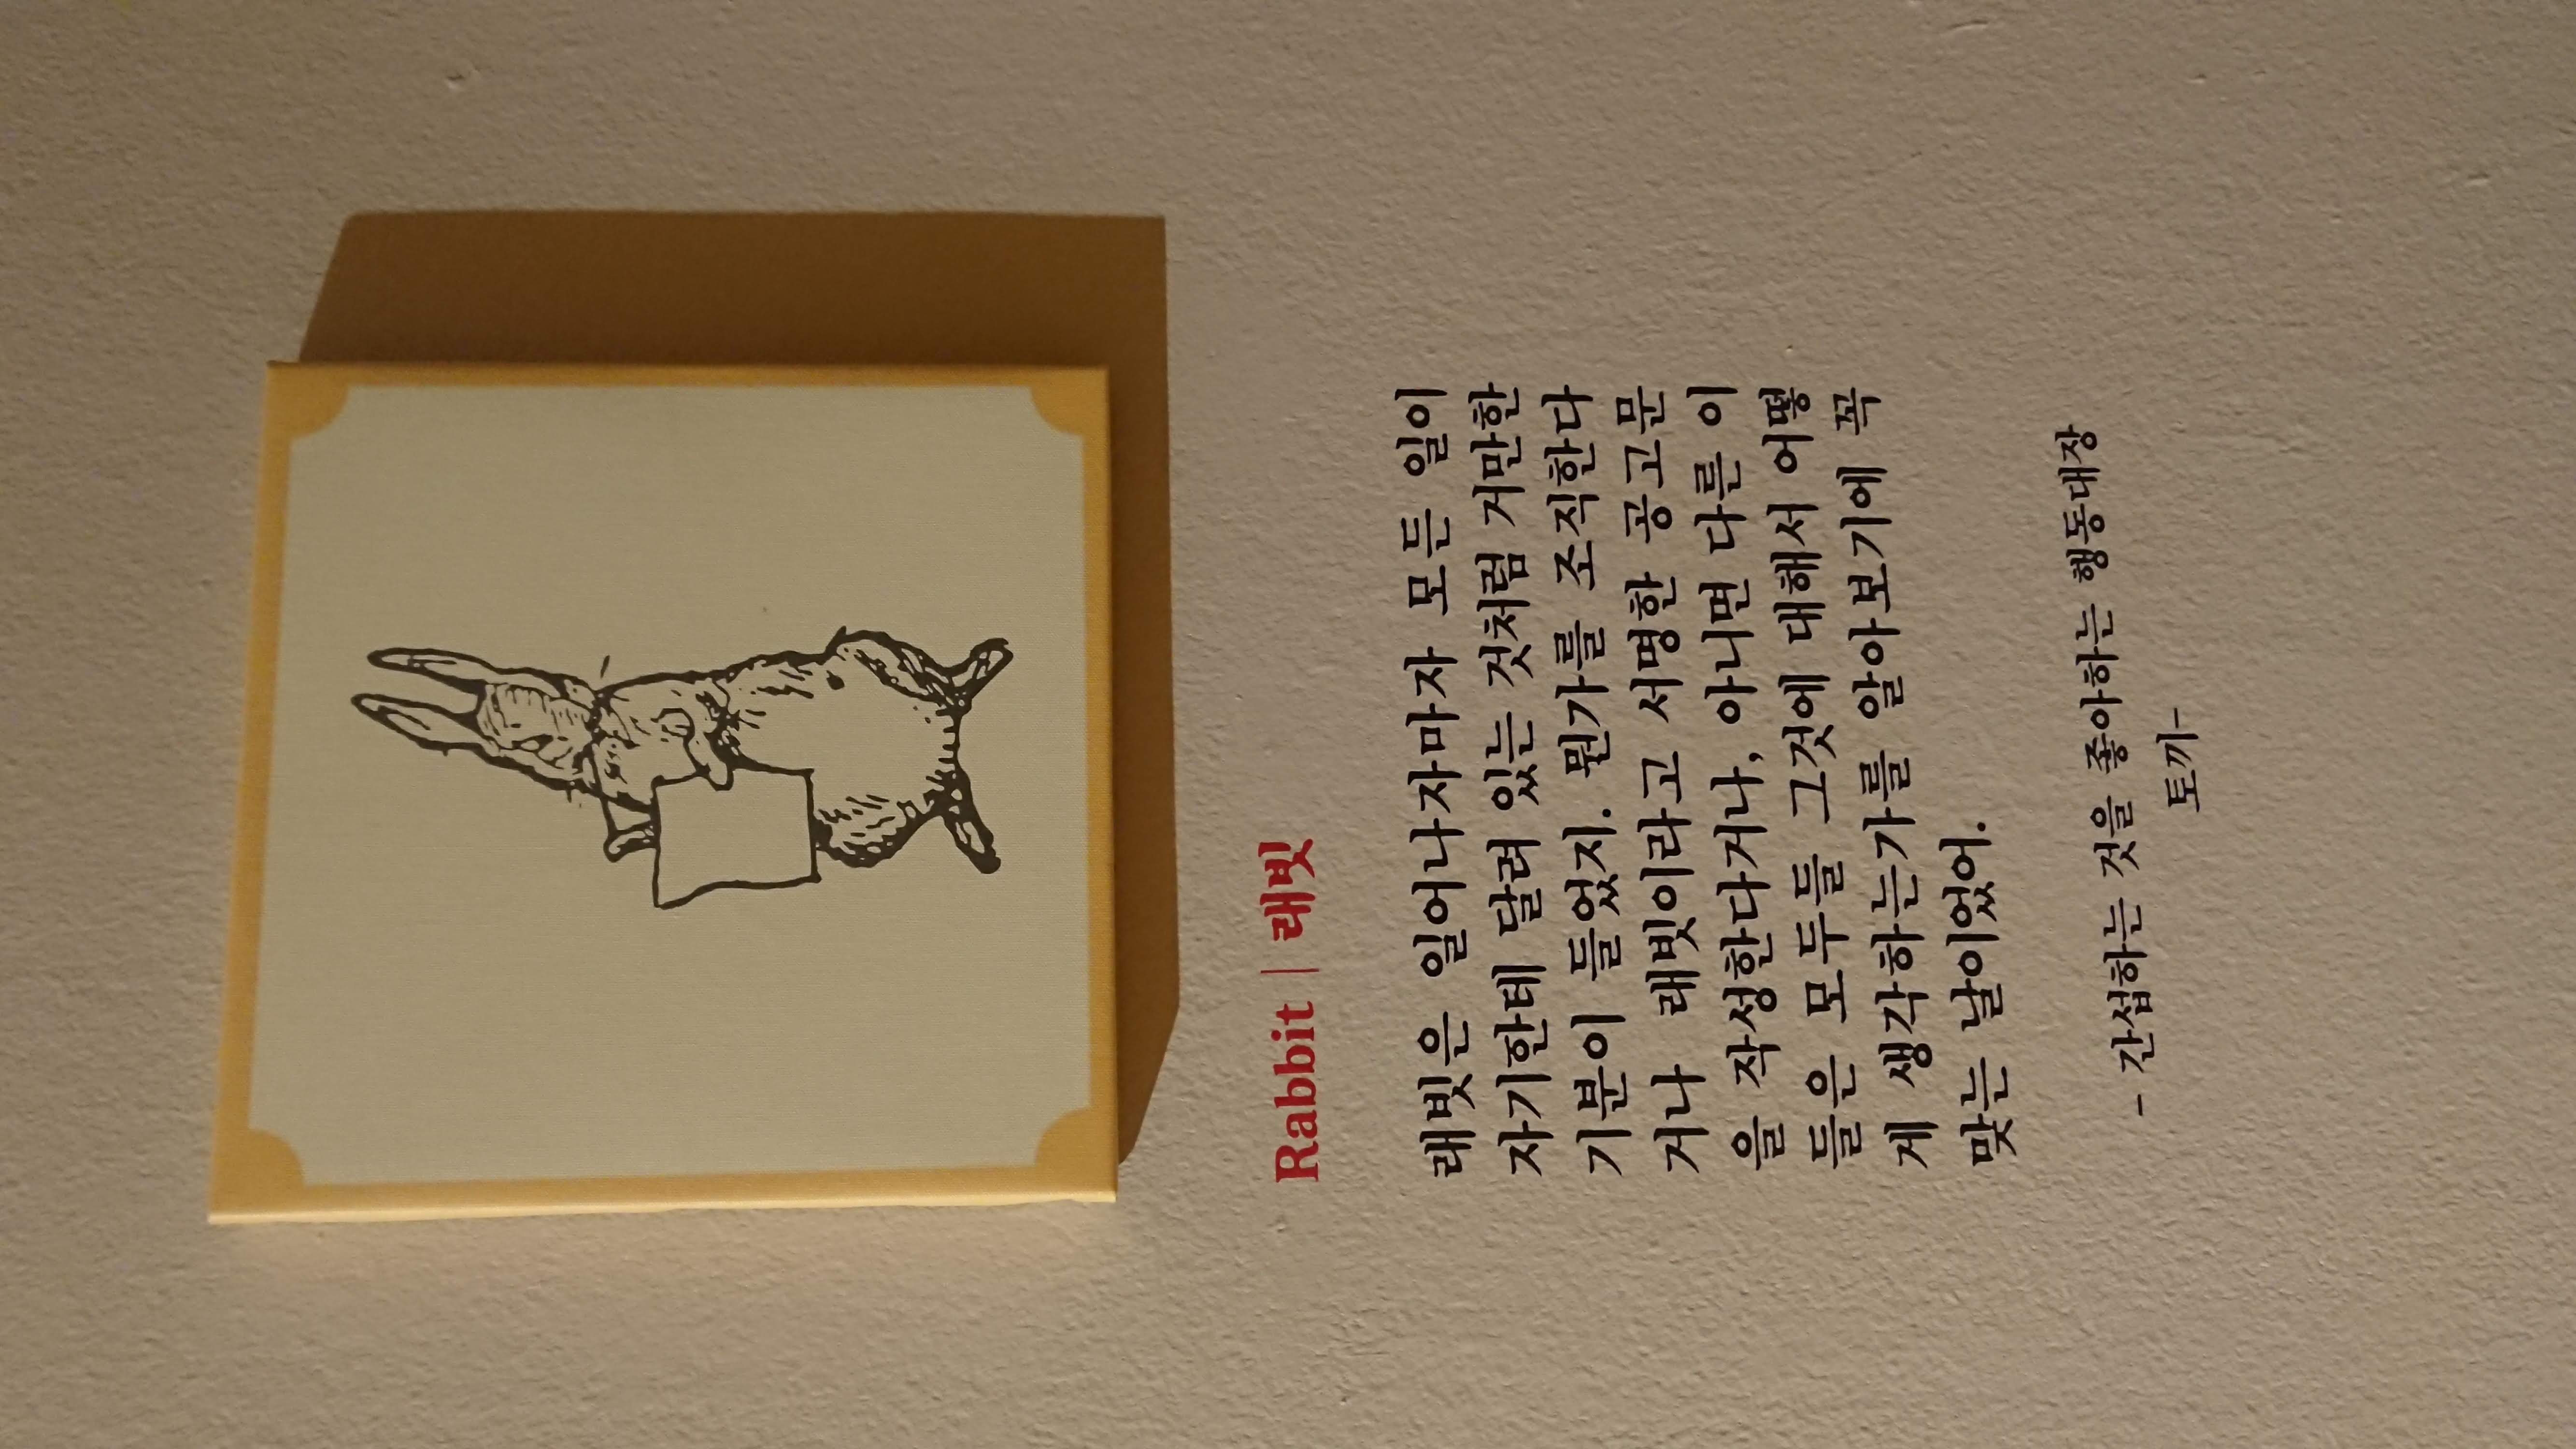 Rabbit | 래빗
래빗은 일어나자마자 모든 일이
자기한테 달려 있는 것처럼 거만한
기분이 들었지. 뭔가를 조직한다
거나 래빗이라고 서명한 공고문
을 작성한다거나, 아니면 다른 이
들은 모두들 그것에 대해서 어떻
게 생각하는가를 알아보기에 꼭
맞는 날이었어.
- 간섭하는 것을 좋아하는 행동대장
토끼-